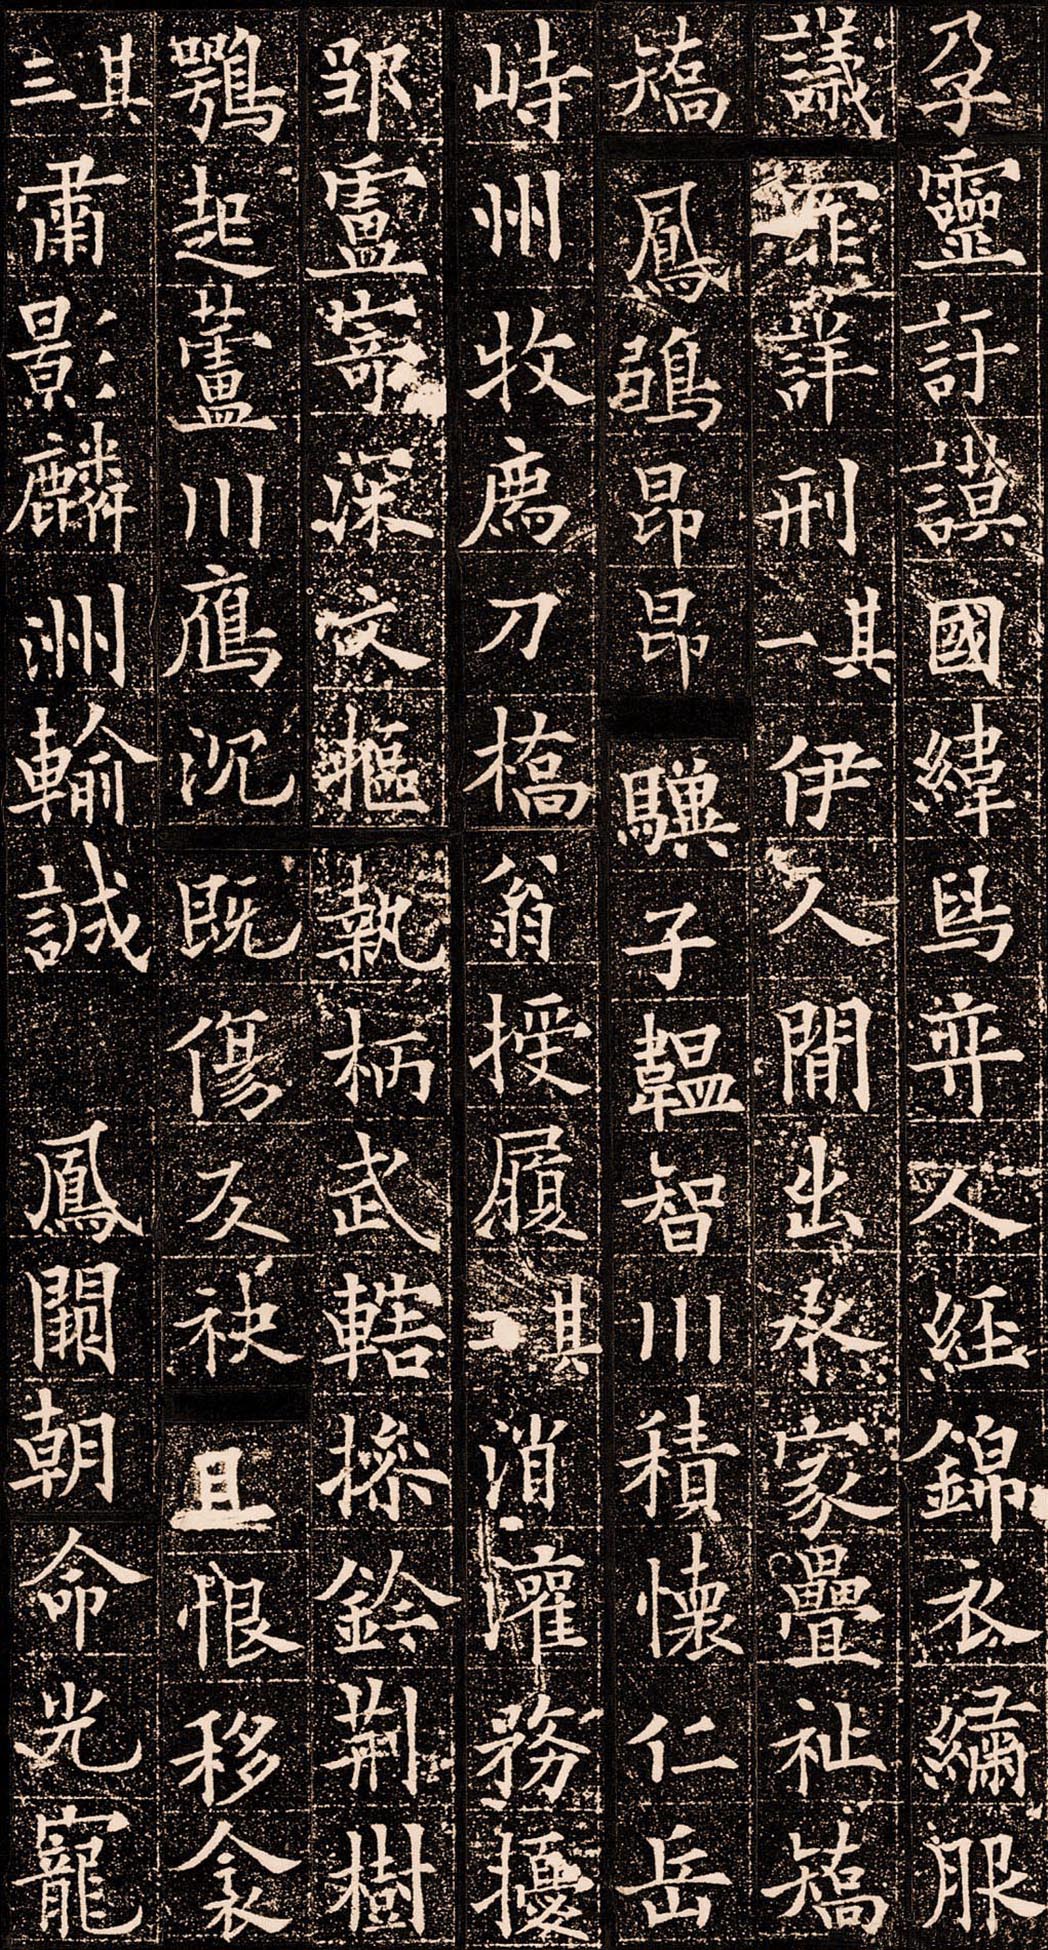 孕靈訏謨國緯舄弈人經錦衣繡服
議罪詳刑其一伊人閒出承家疊祉矯
矯鳳鶵昂昂驥子韞智川積懷仁岳
峙州牧薦刀橋翁授履其二消灌務擾
邹盧寄深文樞執柄武轄操鈐荊樹
鶚起蘆川鴈沉既傷反袂且恨移衾
其三肅影麟洲輸誠鳳闕朝命光寵